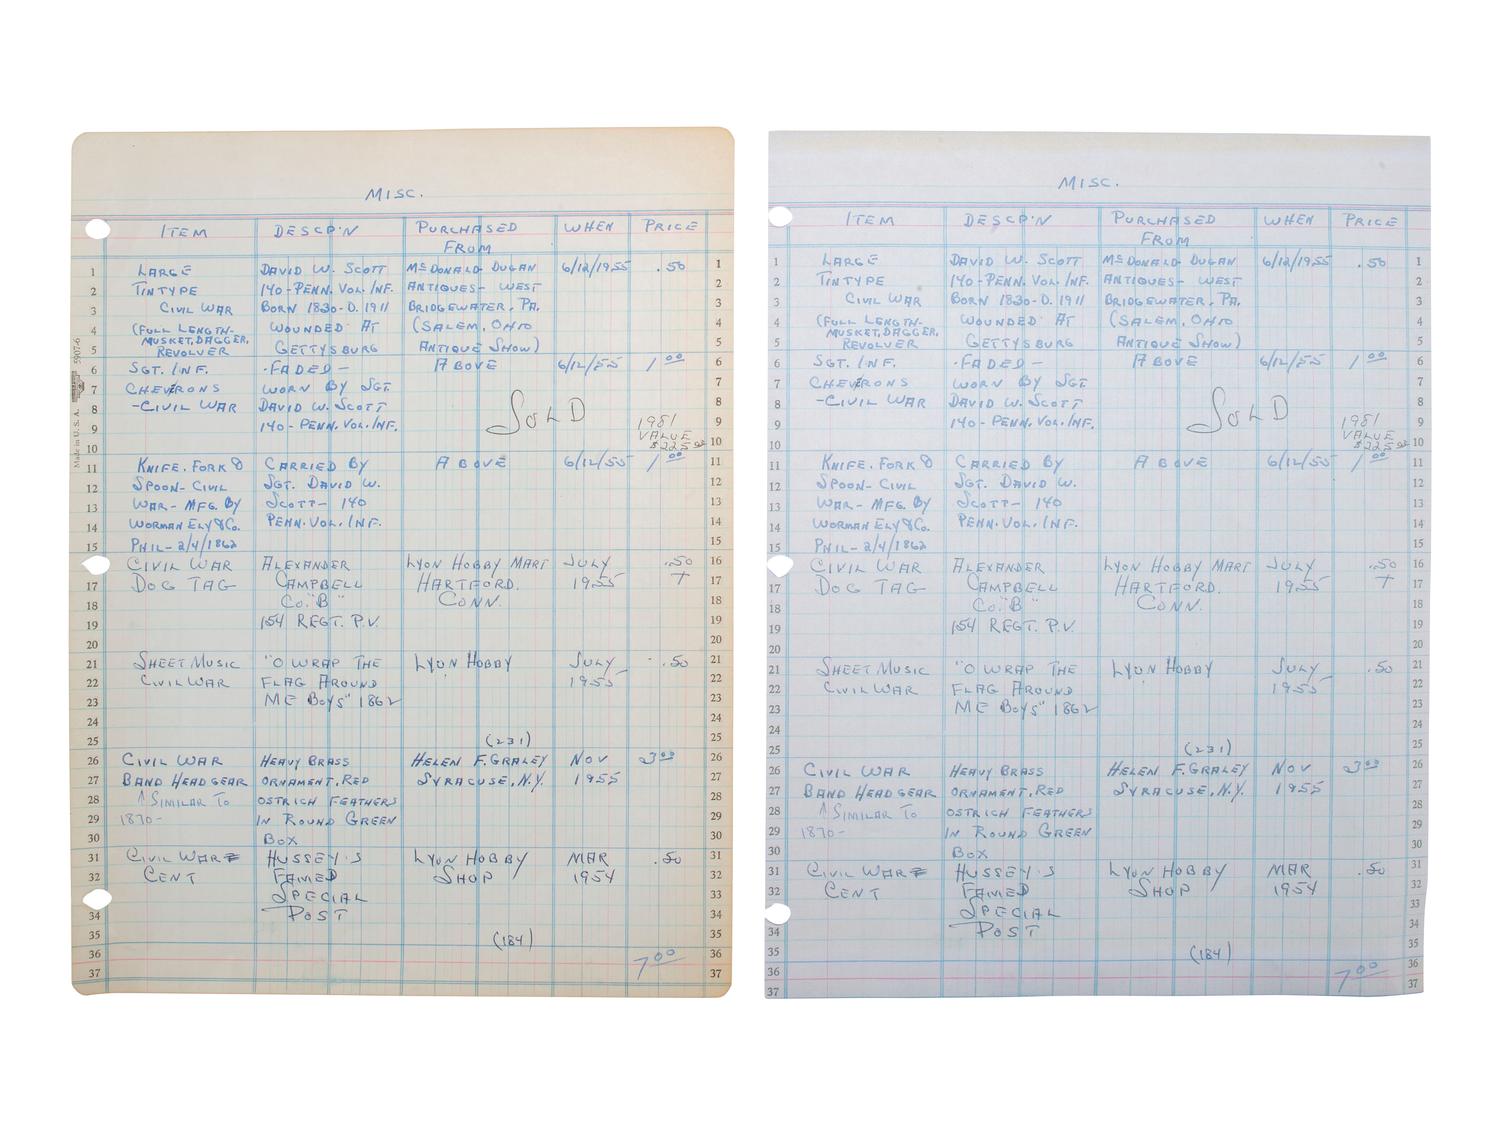 MISC.
ITEM DESCP'N PURCHASED FROM WHEN PRICE
1 LARGE DAVID W. SCOTT McDONALD DUGAN 6/12/1955 .50 1
2 TINTYPE 140-PENN. VOL. INF. ANTIQUES- WEST 2
3 CIVIL WAR BORN 1830-D. 1911 BRIDGEWATER, PA. 3
4 (FULL LENGTH- WOUNDED AT (SALEM, OHIO 4
MUSKET, DAGGER,
5 REVOLVER GETTYSBURG ANTIQUE SHOW) 5
6 SGT. INF. -FADED- ABOVE 6/12/55 1 00 6
7 CHEVRONS WORN BY SGT. 7
8 -CIVIL WAR DAVID W. SCOTT SOLD 8
9 140-PENN. VOL. INF. 1981 9
10 VALUE 10
$225 00
11 KNIFE, FORK & CARRIED BY ABOVE 6/12/55 1 00 11
12 SPOON-CIVIL SGT. DAVID W. 12
13 WAR-MFG. BY SCOTT- 140 13
14 WORMAN ELY & Co. PENN. VOL. INF. 14
15 PHIL-2/4/1862 15
CIVIL WAR ALEXANDER LYON HOBBY MART JULY .50 16
17 DOG TAG CAMPBELL HARTFORD. 1955 T 17
18 Co. "B" CONN. 18
19 154 REGT. P.V. 19
20 20
21 SHEET MUSIC "O WRAP THE LYON HOBBY JULY .50 21
22 CIVIL WAR FLAG AROUND 1955 22
23 ME BOYS" 1862 23
24 24
25 (231) 25
26 CIVIL WAR HEAVY BRASS HELEN F. GRALEY NOV 3 00 26
27 BAND HEADGEAR ORNAMENT, RED SYRACUSE, N.Y. 1955 27
28 ↑ SIMILAR TO OSTRICH FEATHERS 28
29 1870- IN ROUND GREEN 29
30 BOX 30
31 CIVIL WAR HUSSEY'S LYON HOBBY MAR .50 31
32 CENT FAMED SHOP 1954 32
SPECIAL 33
34 POST 34
35 (184) 35
36 7 00 36
37 37
Made in U. S. A. 5907-6
MISC.
ITEM DESCP'N PURCHASED FROM WHEN PRICE
1 LARGE DAVID W. SCOTT McDONALD DUGAN 6/12/1955 .50 1
2 TINTYPE 140-PENN. VOL. INF. ANTIQUES- WEST 2
3 CIVIL WAR BORN 1830-D. 1911 BRIDGEWATER, PA. 3
4 (FULL LENGTH- WOUNDED AT (SALEM, OHIO 4
MUSKET, DAGGER,
5 REVOLVER GETTYSBURG ANTIQUE SHOW) 5
6 SGT. INF. -FADED- ABOVE 6/12/55 1 00 6
7 CHEVRONS WORN BY SGT 7
8 -CIVIL WAR DAVID W. SCOTT SOLD 8
9 140-PENN. VOL. INF. 1981 9
10 VALUE 10
$225 00
11 KNIFE, FORK & CARRIED BY ABOVE 6/12/55 1 00 11
12 SPOON-CIVIL SGT. DAVID W. 12
13 WAR-MFG. BY SCOTT- 140 13
14 WORMAN ELY & Co. PENN. VOL. INF. 14
15 PHIL-2/4/1862 15
CIVIL WAR ALEXANDER LYON HOBBY MART JULY .50 16
17 DOG TAG CAMPBELL HARTFORD. 1955 T 17
18 Co. "B" CONN. 18
19 154 REGT. P.V. 19
20 20
21 SHEET MUSIC "O WRAP THE LYON HOBBY JULY .50 21
22 CIVIL WAR FLAG AROUND 1955 22
23 ME BOYS" 1862 23
24 24
25 (231) 25
26 CIVIL WAR HEAVY BRASS HELEN F. GRALEY NOV 3 00 26
27 BAND HEADGEAR ORNAMENT, RED SYRACUSE, N.Y. 1955 27
28 ↑ SIMILAR TO OSTRICH FEATHERS 28
29 1870- IN ROUND GREEN 29
30 BOX 30
31 CIVIL WAR HUSSEY'S LYON HOBBY MAR .50 31
32 CENT FAMED SHOP 1954 32
SPECIAL 33
34 POST 34
35 (184) 35
36 7 00 36
37 37